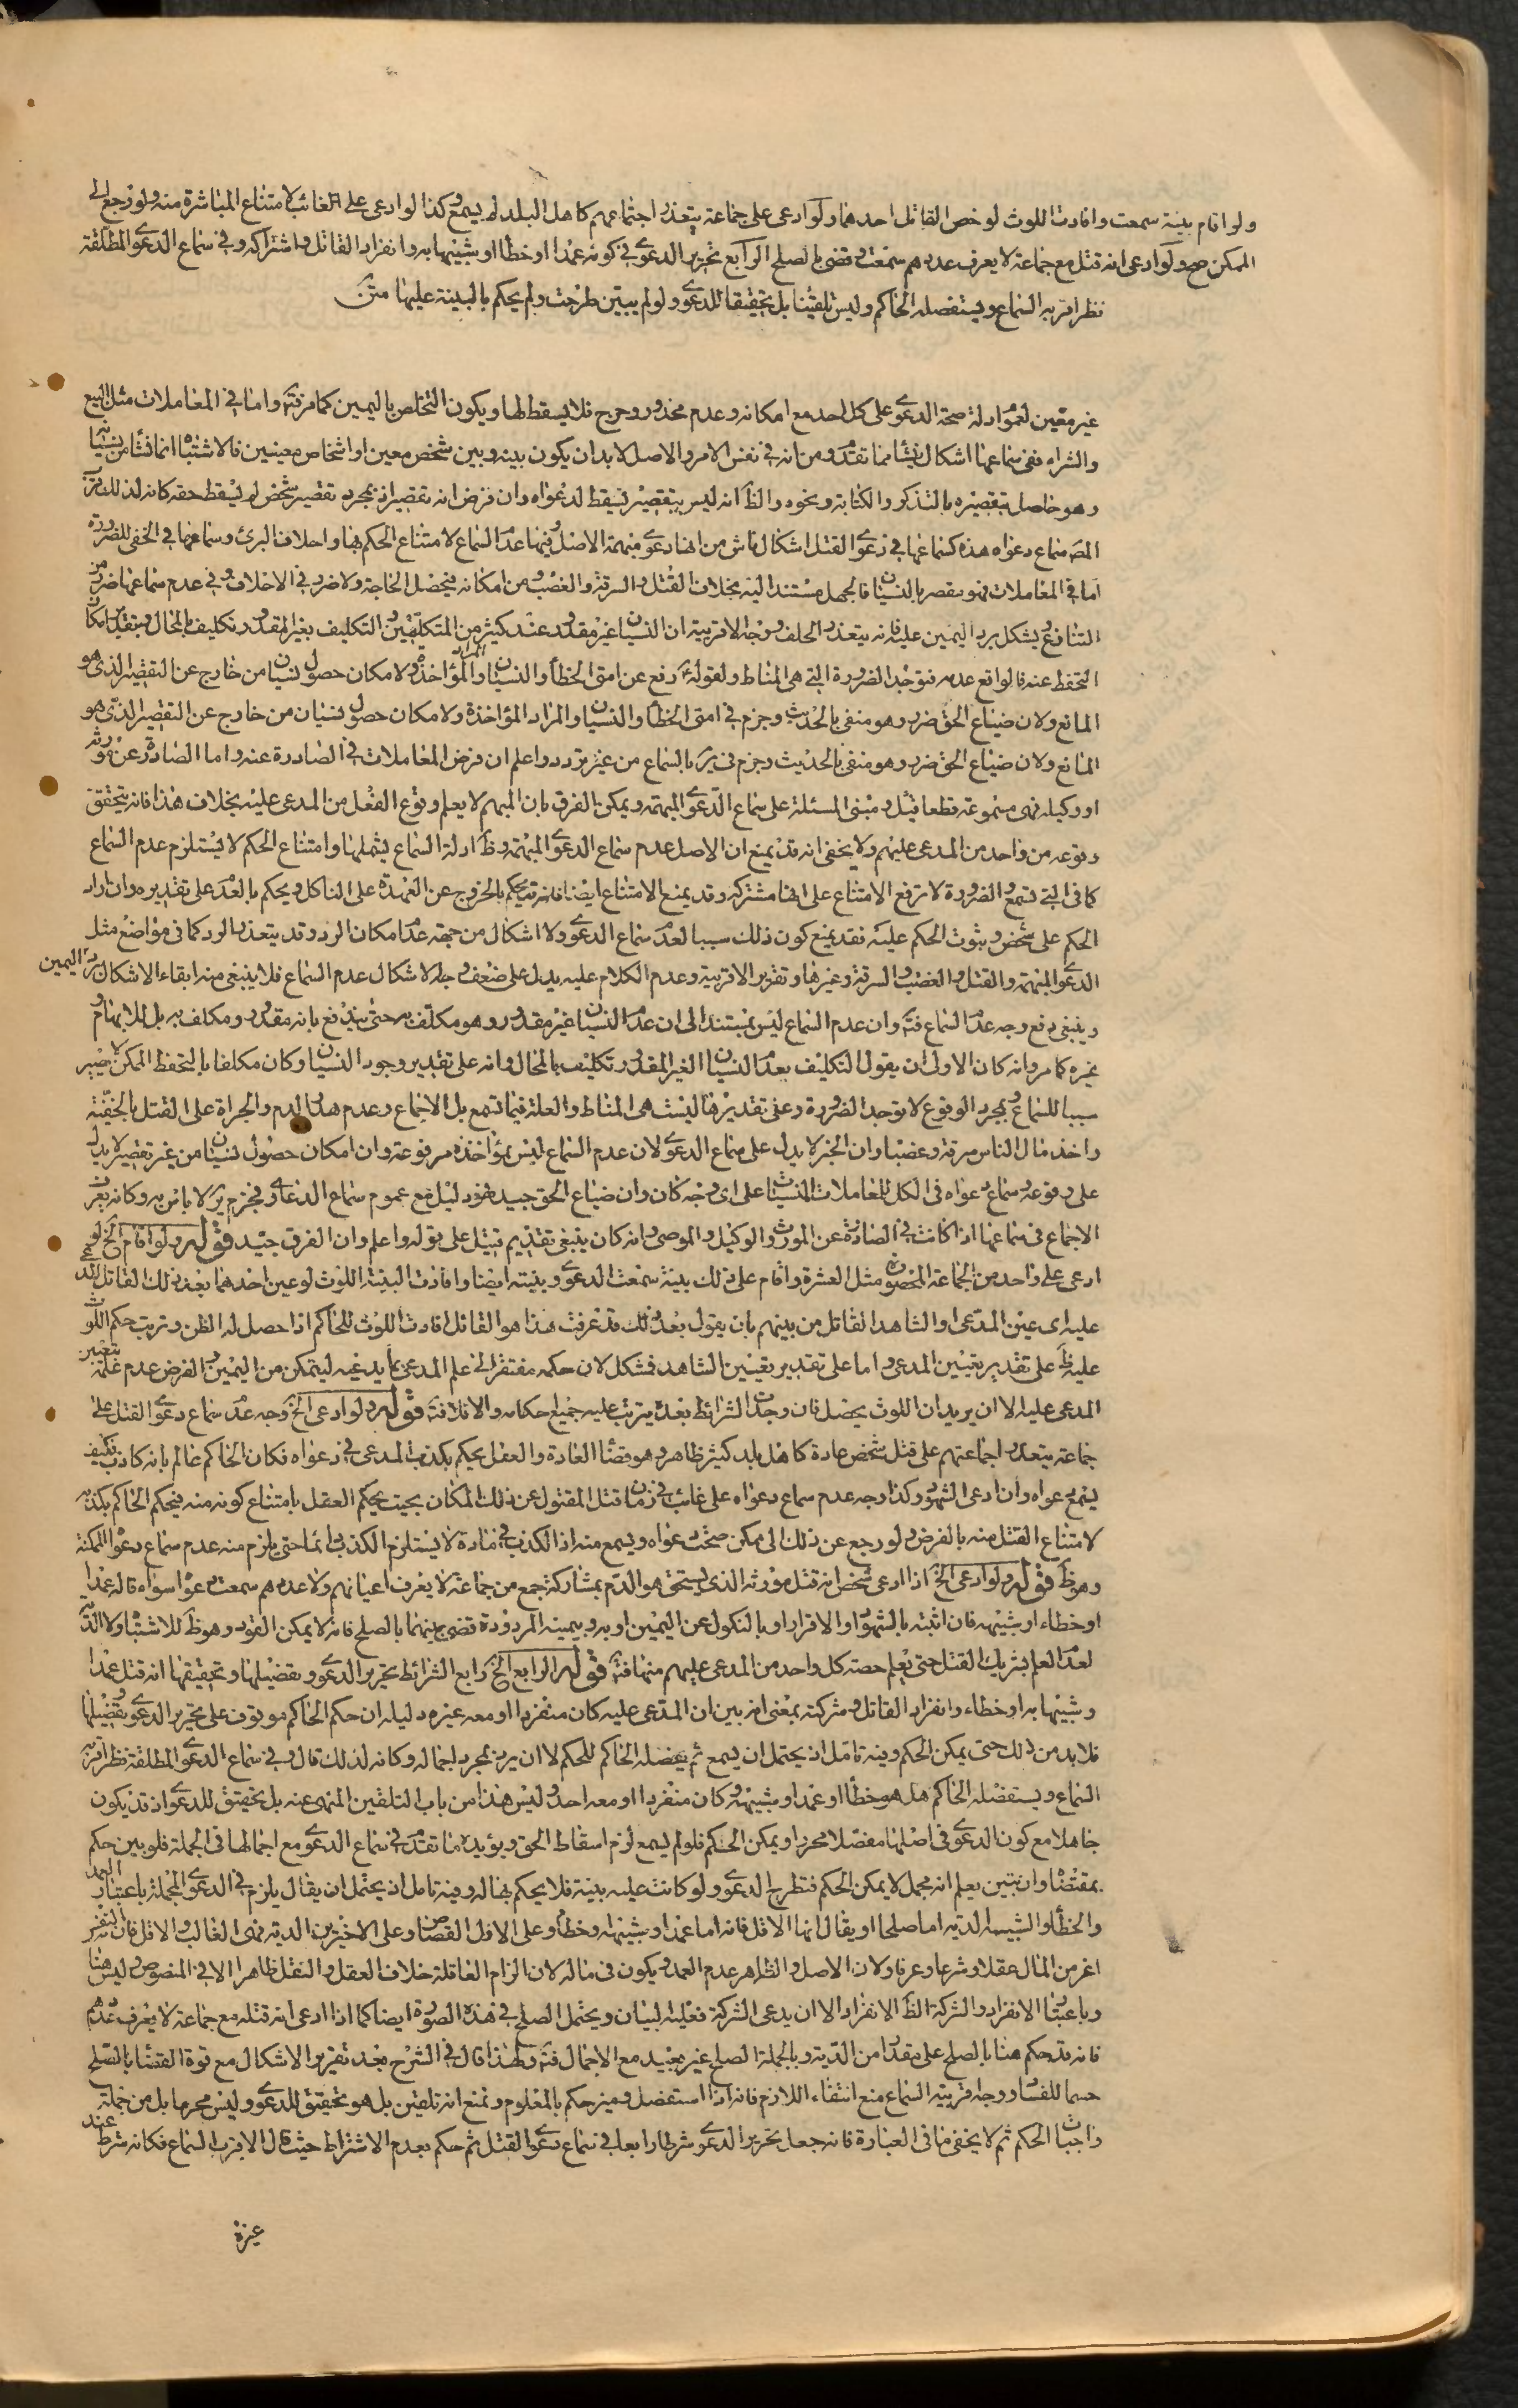 ولو اقام بينة سمعت وافادت اللوث لو خص القاتل احدهما ولو ادعى على جماعة يتعذر اجتماعهم كاهل البلد لم يسمع وكذا لو ادعى على الغائب لامتناع المباشرة منه ولو رجع الى
الممكن صح ولو ادعى انه قتل مع جماعة لا يعرف عددهم سمعت وقضى بالصلح الرابع تحرير الدعوى في كونه عمدا او خطأ او شبيها به وانفراد القاتل واشتراكه وفي سماع الدعوى المطلقة
نظر اقربه السماع ويستفصله الحاكم وليس تلقينا بل تحقيقا للدعوى ولو لم يبين طرحت ولم يحكم بالبينة عليها متن
غير معين لعموم ادلة صحة الدعوى على كل احد مع امكانه وعدم محذور وحرج فلا يسقط لها ويكون التخلص باليمين كما مر فتأمل واما في المعاملات مثل البيع
والشراء ففي سماعها اشكال ينشأ مما تقدم ومن انه في نفس الامر والاصل لا بد ان يكون بينه وبين شخص معين او اشخاص معينين فالاشتباه انما نشأ من نسيانه
وهو حاصل بتقصيره بالتذكر والكتابة ونحوه والظ انه ليس بتقصير يسقط لدعواه وان فرض انه تقصير اذ بمجرد تقصير شخص لم يسقط حقه كانه لذلك
المص سماع دعواه هذه كسماعها في دعوى القتل اشكال ناش من انها دعوى مبهمة الاصل فيها عدم السماع لامتناع الحكم بها واحلاف البرئ وسماعها في الخفي للضرورة
اما في المعاملات فهو مقصر بالنسيان فالجهل مستند اليه بخلاف القتل والسرقة والغصب ومن امكانه فيحصل الحاجة ولا ضرر في الاحلاف وفي عدم سماعها ضرر من
التنازع ويشكل برد اليمين عليه فانه يتعذر الحلف ووجه الاقربية ان النسيان غير مقدور عند كثير من المتكلمين والتكليف بغير المقدور تكليف بالمحال وبتقدير امكان
التحفظ عنه فالواقع عدمه فتوجد الضرورة التي هي المناط ولقوله رفع عن امتي الخطأ والنسيان والمراد المؤاخذة ولامكان حصول نسيان من خارج عن التقصير الذي هو
المانع ولان ضياع الحق ضرر وهو منفي بالحديث وجزم في امتى الخطأ والنسيان والمراد المؤاخذة ولامكان حصول نسيان من خارج عن التقصير الذي هو
المانع ولان ضياع الحق ضرر وهو منفي بالحديث وجزم في ير بالسماع من غير تردد واعلم ان فرض المعاملات في الصادرة عنه واما الصادرة عن مورثه
او وكيله فهي مسموعة قطعا قيل ومبنى المسئلة على سماع الدعوى المبهمة ويمكن الفرق بان المبهم لا يعلم وقوع الفعل من المدعى عليه بخلاف هذا فانه يتحقق
وقوعه من واحد من المدعى عليهم ولا يخفى انه قد يمنع ان الاصل عدم سماع الدعوى المبهمة وظ ادلة السماع يشملها وامتناع الحكم لا يستلزم عدم السماع
كما في التي تسمع والضرورة لا ترفع الامتناع على انها مشتركة وقد يمنع الامتناع ايضا فانه قد يحكم بالخروج عن العهدة على الناكل ويحكم بالعدم على تقديره وان اراد
الحكم على شخص وثبوت الحكم عليه فقد يمنع كون ذلك سببا لعدم سماع الدعوى ولا اشكال من جهة عدم امكان الرد وقد يتعذر الرد كما في مواضع مثل
الدعوى المبهمة والقتل والغصب والسرقة وغيرها وتقرير الاقربية وعدم الكلام عليه يدل على ضعف وجه الاشكال عدم السماع فلا ينبغي منه ابقاء الاشكال برد اليمين
وينبغي دفع وجه عدم السماع فتأمل وان عدم السماع ليس بمستند الى ان عدم النسيان غير مقدور وهو مكلف به حتى يندفع بانه مقدور ومكلف به بل للابهام و
غيره كما مر وانه كان الاولى ان يقول التكليف بعدم النسيان الغير المقدور تكليف بالمحال وانه على تقدير وجود النسيان وكان مكلفا بالتحفظ الممكن لا يصير
سببا للسماع وبمجرد الوقوع لا توجد الضرورة وعلى تقديرها ليست هي المناط والعلة فيما تسمع بل الاجماع وعدم هدر الدم والجراة على القتل بالخفية
واخذ مال الناس سرقة وغصبا وان الخبر لا يدل على سماع الدعوى لان عدم السماع ليس بمؤاخذة مرفوعة وان امكان حصول نسيان من غير تقصير لا يدل
على وقوعه وسماع دعواه في الكل للمعاملات المنسيات على اي وجه كان وان ضياع الحق جيد فهو دليل مع عموم سماع الدعاوى فجزم ير لا باس به وكانه يعرف
الاجماع في سماعها اذا كانت في الصادرة عن المورث والوكيل والموصي وانه كان ينبغي تقديم قيل على قوله واعلم وان الفرق جيد قوله ولو اقام الخ لو
ادعى على واحد من الجماعة المحصورة مثل العشرة واقام على ذلك بينة سمعت الدعوى وبينته ايضا وافادت البينة اللوث لو عين احدهما بعد ذلك القاتل المدعى
عليه اى عين المدعى او الشاهد القاتل من بينهم بان يقول بعد ذلك قد عرفت هذا هو القاتل افادت اللوث للحاكم اذا حصل له الظن وترتب حكم اللوث
عليه ظ على تقدير تعيين المدعي واما على تقدير تعيين الشاهد فشكل لان حكمه مفتقر الى علم المدعي بما يدعيه ليتمكن من اليمين والفرض عدم علمه بتعيين
المدعى عليه الا ان يريد ان اللوث يحصل فان وجدت الشرائط بعده يترتب عليه جميع احكامه والا فلا فتأمل قوله ولو ادعى الخ وجه عدم سماع دعوى القتل على
جماعة يتعذر اجتماعهم على قتل شخص عادة كاهل بلد كثير ظاهر وهو قضاء العادة والعقل بحكم بكذب المدعي في دعواه فكان الحاكم عالم بانه كاذب فكيف
يسمع دعواه وان ادعى الشهود وكذا وجه عدم سماع دعواه على غائب في زمان قتل المقتول عن ذلك المكان بحيث يحكم العقل بامتناع كونه منه فيحكم الحاكم بكذبه
لامتناع القتل منه بالفرض ولو رجع عن ذلك الى ممكن صحت دعواه ويسمع منه اذ الكذب في مادة لا يستلزم الكذب دائما حتى يلزم منه عدم سماع دعواه الممكنة
وهو ظ قوله ولو ادعى الخ اذا ادعى شخص انه قتل مورثه الذي يستحق هو الدم بمشاركة جمع من جماعة لا يعرف اعيانهم ولا عددهم سمعت دعواه سواء قاله عمدا
او خطاء او شبيهه فان اثبته بالشهود او الاقرار او بالنكول عن اليمين او به وبيمينه المردودة قضى بينهما بالصلح فانه لا يمكن القود وهو ظ للاشتباه ولا الدية
لعدم العلم بشريك القتل حتى يعلم حصة كل واحد من المدعى عليهم منها فتأمل قوله الرابع الخ رابع الشرائط تحرير الدعوى وتفصيلها وتحقيقها انه قتل عمدا
وشبيها به او خطاء وانفراد القاتل وشركته بمعنى انه يبين ان المدعى عليه كان منفردا او معه غيره دليله ان حكم الحاكم موقوف على تحرير الدعوى وتفصيلها
فلا بد من ذلك حتى يمكن الحكم وفيه تامل اذ يحتمل ان يسمع ثم يفصله الحاكم للحكم لا ان يرد بمجرد اجماله وكانه لذلك قال وفي سماع الدعوى المطلقة نظر اقربه
السماع ويستفصله الحاكم هل هو خطأ او عمد او شبيهه وكان منفردا او معه احد وليس هذا من باب التلقين المنهى عنه بل تحقيق للدعوى اذ قد يكون
جاهلا مع كون الدعوى في اصلها مفصلا محررا ويمكن الحكم فلو لم يسمع لزم اسقاط الحق ويؤيده ما تقدم في سماع الدعوى مع اجمالها في الجملة فلو بين حكم
بمقتضاه وان تبين يعلم انه مجمل لا يمكن الحكم فتطرح الدعوى ولو كانت عليه بينة فلا يحكم بها له وفيه تامل اذ يحتمل ان يقال يلزم في الدعوى المجملة باعتبار العمد
والخطأ والشبيه الدية اما صلحا او يقال انها الاقل فانه اما عمد او شبيهه او خطأ وعلى الاول القصاص وعلى الاخيرين الدية فهي الغالب والاقل فان النفس
اعز من المال عقلا وشرعا وعرفا ولان الاصل والظاهر عدم العمد ويكون في ماله لان الزام العاقلة خلاف العقل والنقل ظاهرا الا في المنصوص وليس هنا
وباعتبار الانفراد والشركة الظ الانفراد الا ان يدعي الشركة فعليه البيان ويحتمل الصلح في هذه الصورة ايضا كما اذا ادعى انه قتله مع جماعة لا يعرف عددهم
فانه قد حكم هنا بالصلح على مقدار من الدية وبالجملة الصلح غير بعيد مع الاجمال فتأمل ولهذا قال في الشرح بعد تقرير الاشكال مع قوة القضاء بالصلح
حسما للفساد ووجه قربيته السماع منع انتفاء اللازم فانه اذا استفصل وميز حكم بالمعلوم ونمنع انه تلقين بل هو تحقيق للدعوى وليس محرما بل من جملة
واجبات الحكم ثم لا يخفى ما في العبارة فانه جعل تحرير الدعوى شرطا رابعا في سماع دعوى القتل ثم حكم بعدم الاشتراط حيث قال الاقرب السماع فكانه شرط عند
غيره